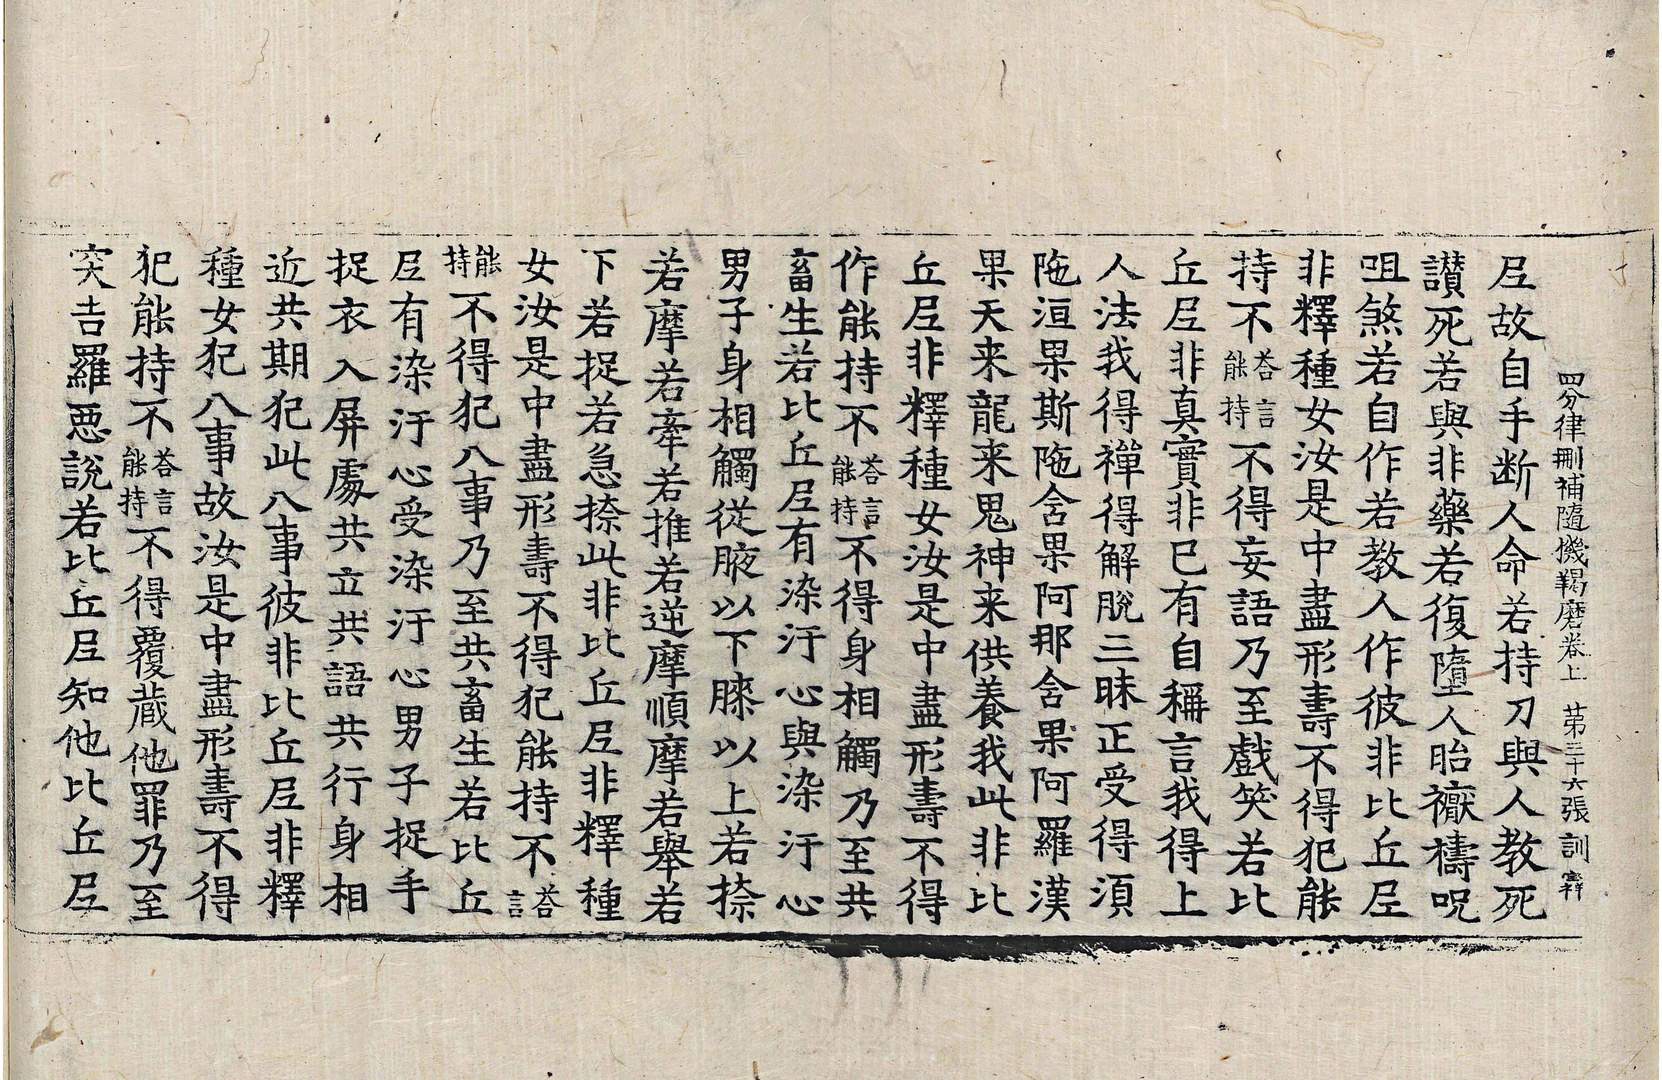 四分律刪補隨機羯磨卷上 苐三十六張 訓 㝎
尼故自手断人命若持刀與人教死
讃死若與非藥若復墮人胎禳禱呪
咀煞若自作若教人作彼非比丘尼
非釋種女汝是中盡形壽不得犯能
持不荅言能持不得妄語乃至戲笑若比
丘尼非真實非已有自稱言我得上
人法我得禪得解脫三昧正受得湏
陁洹果斯陁含果阿那含果阿羅漢
果天来龍来鬼神来供養我此非比
丘尼非釋種女汝是中盡形壽不得
作能持不荅言能持不得身相觸乃至共
畜生若比丘尼有染汙心與染汙心
男子身相觸從腋以下膝以上若捺
若摩若牽若推若逆摩順摩若舉若
下若捉若急捺此非比丘尼非釋種
女汝是中盡形壽不得犯能持不荅言
能持不得犯八事乃至共畜生若比丘
尼有染汙心受染汙心男子捉手
捉衣入屏䖏共立共語共行身相
近共期犯此八事彼非比丘尼非釋
種女犯八事故汝是中盡形壽不得
犯能持不荅言能持不得覆藏他罪乃至
突吉羅惡說若比丘尼知他比丘尼